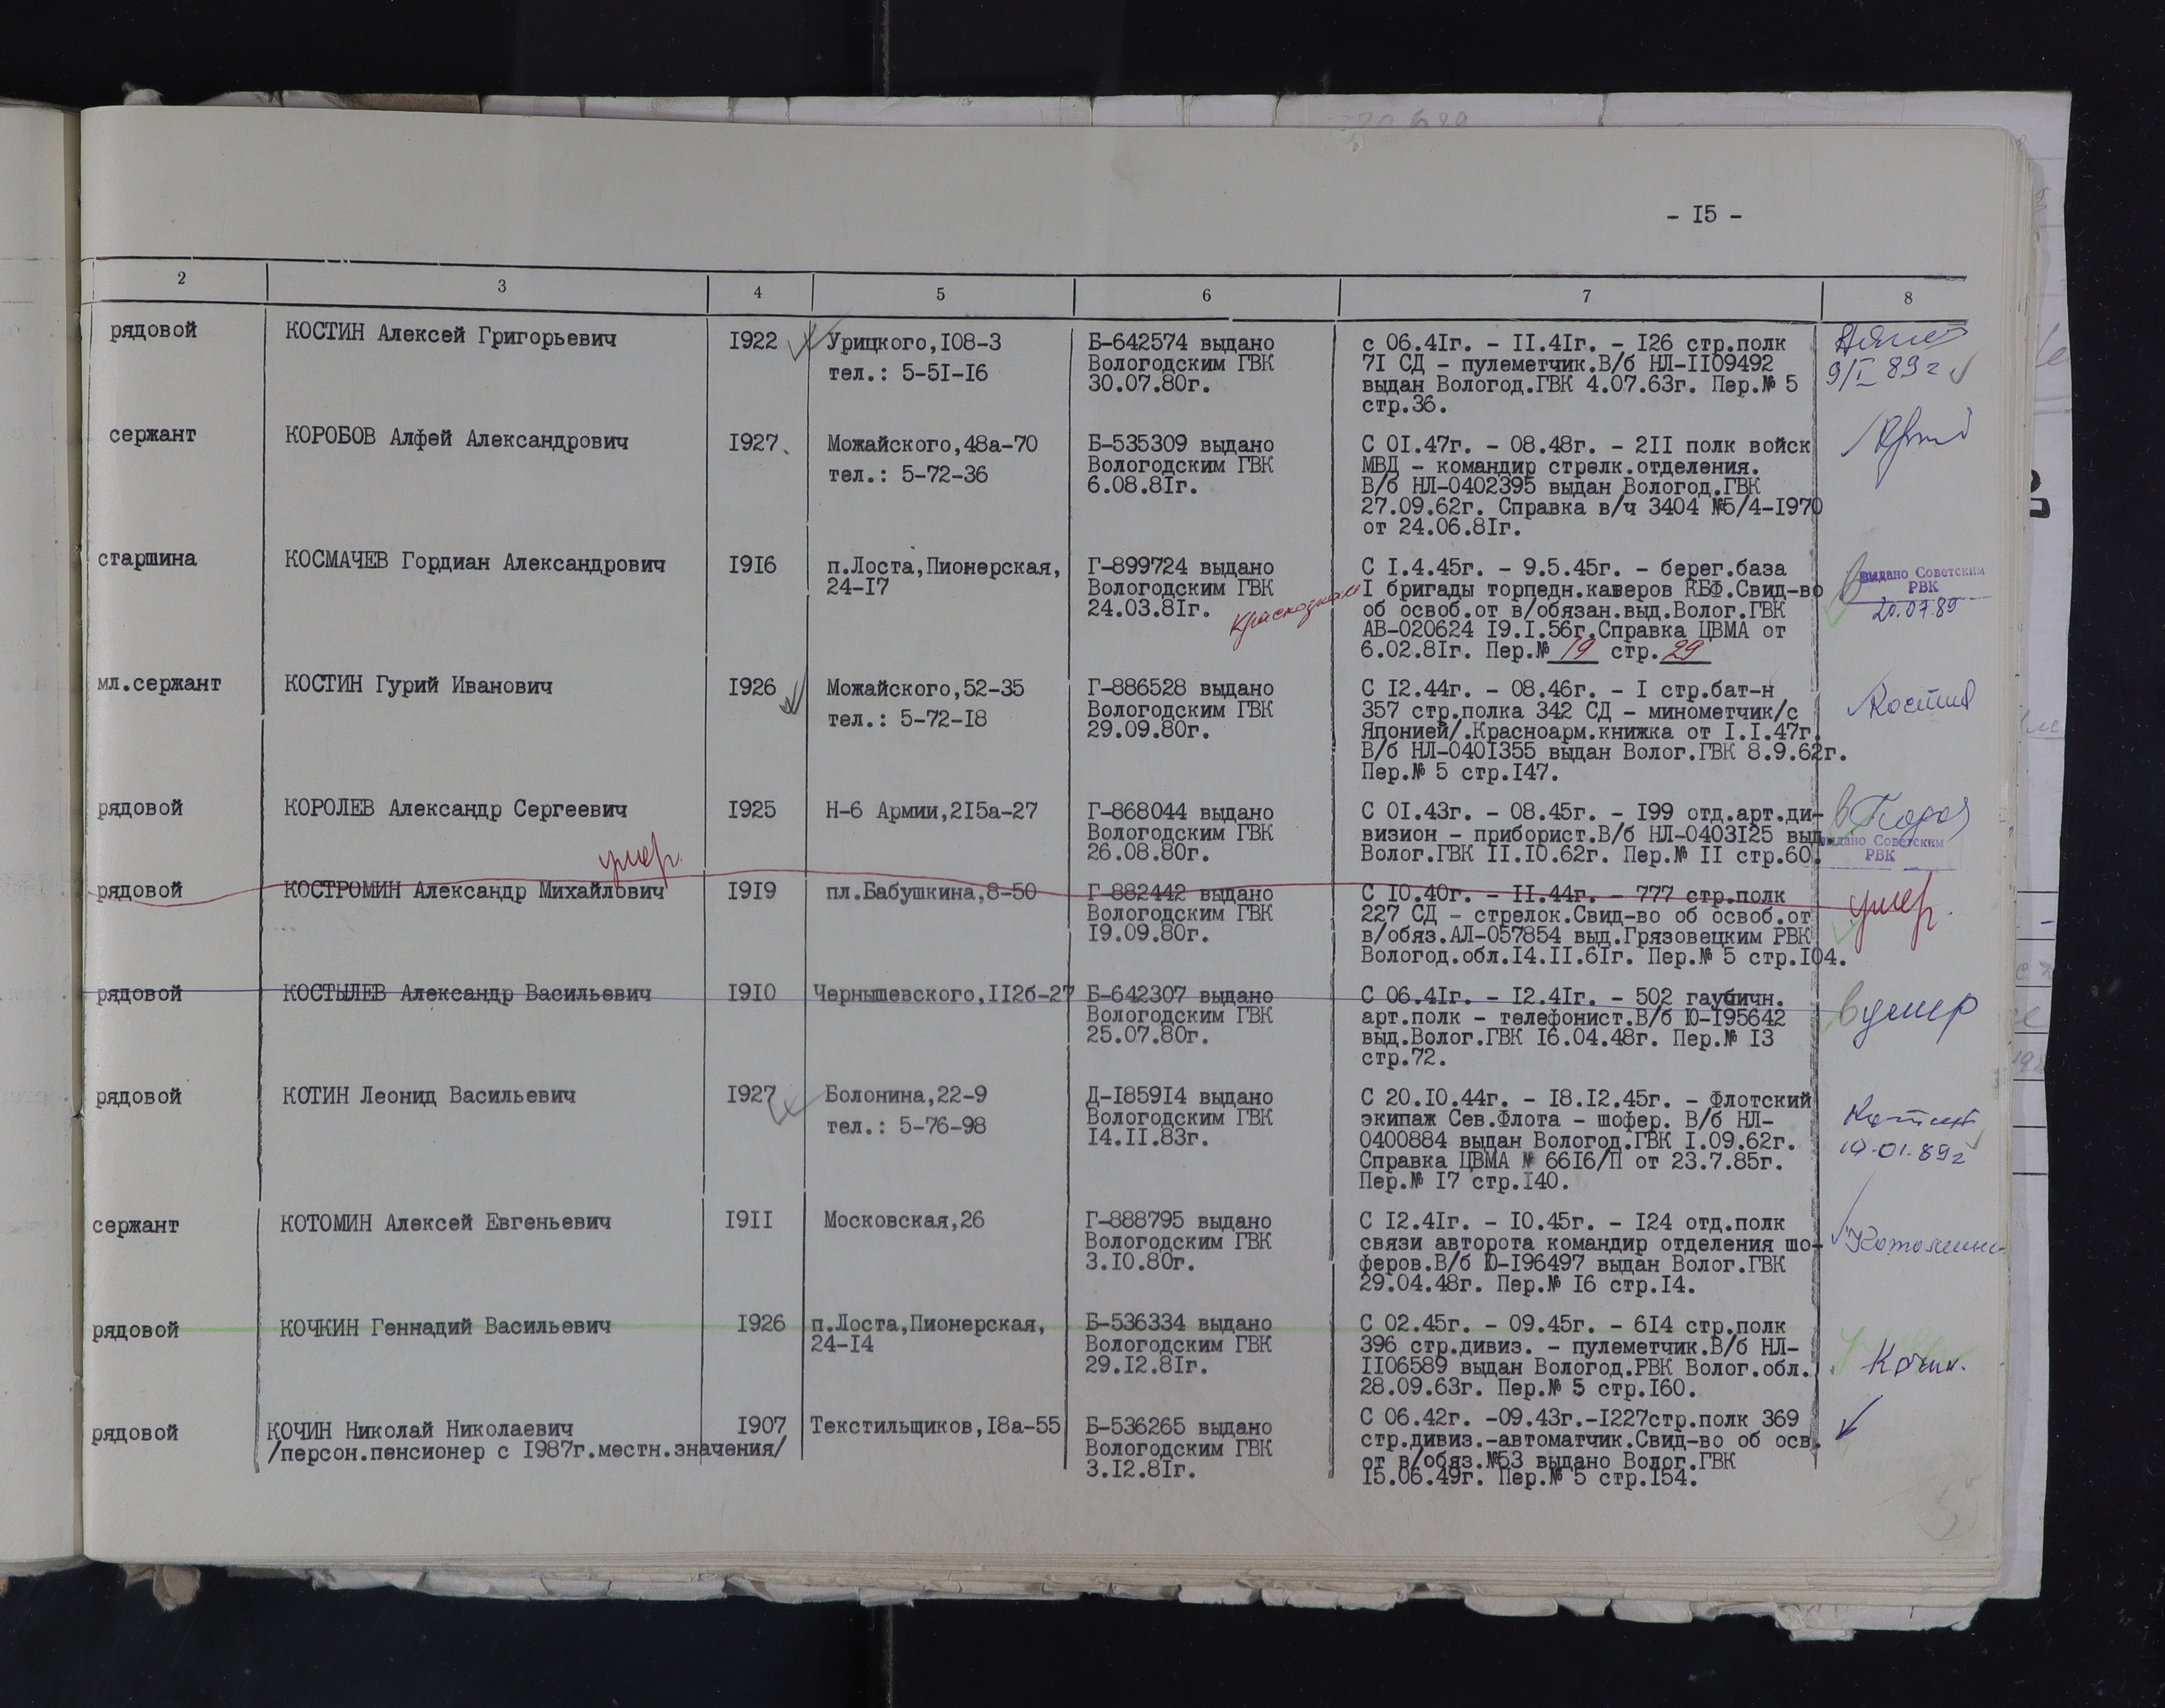 - I5 -
2 3 4 5 6 7 8
рядовой КОСТИН Алексей Григорьевич I922 Урицкого,I08-3 Б-642574 выдано с 06.4Iг. - II.4Iг. - I26 стр.полк
Вологодским ГВК 7I СД - пулеметчик.В/б НЛ-II09492
тел.: 5-5I-I6 30.07.80г. выдан Вологод.ГВК 4.07.63г. Пер.№ 5 9/I 89г
стр.36.
сержант КОРОБОВ Алфей Александрович I927. Можайского,48а-70 Б-535309 выдано С 0I.47г. - 08.48г. - 2II полк войск
Вологодским ГВК МВД - командир стрелк.отделения.
тел.: 5-72-36 6.08.8Iг. В/б НЛ-0402395 выдан Вологод.ГВК
27.09.62г. Справка в/ч 3404 №5/4-I970
от 24.06.8Iг.
старшина КОСМАЧЕВ Гордиан Александрович I9I6 п.Лоста,Пионерская, Г-899724 выдано С I.4.45г. - 9.5.45г. - берег.база выдано Советским
24-I7 Вологодским ГВК I бригады торпедн.катеров КБФ.Свид-во РВК
24.03.8Iг. об освоб.от в/обязан.выд.Волог.ГВК 20.07.89
АВ-020624 I9.I.56г.Справка ЦВМА от
6.02.8Iг. Пер.№ 19 стр. 29
мл.сержант КОСТИН Гурий Иванович I926 Можайского,52-35 Г-886528 выдано С I2.44г. - 08.46г. - I стр.бат-н Костин
Вологодским ГВК 357 стр.полка 342 СД - минометчик/с
тел.: 5-72-I8 29.09.80г. Японией/.Красноарм.книжка от I.I.47г.
В/б НЛ-040I355 выдан Волог.ГВК 8.9.62г.
Пер.№ 5 стр.I47.
рядовой КОРОЛЕВ Александр Сергеевич I925 Н-6 Армии,2I5а-27 Г-868044 выдано С 0I.43г. - 08.45г. - I99 отд.арт.ди-
Вологодским ГВК визион - приборист.В/б НЛ-0403I25 выд. выдано Советским
26.08.80г. Волог.ГВК II.I0.62г. Пер.№ II стр.60. РВК
умер.
рядовой КОСТРОМИН Александр Михайлович I9I9 пл.Бабушкина,8-50 Г-882442 выдано С I0.40г. - II.44г. - 777 стр.полк умер.
Вологодским ГВК 227 СД - стрелок.Свид-во об освоб.от
I9.09.80г. в/обяз.АЛ-057854 выд.Грязовецким РВК
Вологод.обл.I4.II.6Iг. Пер.№ 5 стр.I04.
рядовой КОСТЫЛЕВ Александр Васильевич I9I0 Чернышевского,II2б-27 Б-642307 выдано С 06.4Iг. - I2.4Iг. - 502 гаубичн. умер
Вологодским ГВК арт.полк - телефонист.В/б Ю-I95642
25.07.80г. выд.Волог.ГВК I6.04.48г. Пер.№ I3
стр.72.
рядовой КОТИН Леонид Васильевич I927 Болонина,22-9 Д-I859I4 выдано С 20.I0.44г. - I8.I2.45г. - Флотский
Вологодским ГВК экипаж Сев.Флота - шофер. В/б НЛ- Котин
тел.: 5-76-98 I4.II.83г. 0400884 выдан Вологод.ГВК I.09.62г. 10.01.89г
Справка ЦВМА № 66I6/П от 23.7.85г.
Пер.№ I7 стр.I40.
сержант КОТОМИН Алексей Евгеньевич I9II Московская,26 Г-888795 выдано С I2.4Iг. - I0.45г. - I24 отд.полк
Вологодским ГВК связи авторота командир отделения шо-
3.I0.80г. феров.В/б Ю-I96497 выдан Волог.ГВК
29.04.48г. Пер.№ I6 стр.I4.
рядовой КОЧКИН Геннадий Васильевич I926 п.Лоста,Пионерская, Б-536334 выдано С 02.45г. - 09.45г. - 6I4 стр.полк
24-I4 Вологодским ГВК 396 стр.дивиз. - пулеметчик.В/б НЛ-
29.I2.8Iг. II06589 выдан Вологод.РВК Волог.обл.
28.09.63г. Пер.№ 5 стр.I60.
рядовой КОЧИН Николай Николаевич I907 Текстильщиков,I8а-55 Б-536265 выдано С 06.42г. -09.43г.-I227стр.полк 369
/персон.пенсионер с I987г.местн.значения/ Вологодским ГВК стр.дивиз.-автоматчик.Свид-во об осв.
3.I2.8Iг. от в/обяз.№53 выдано Волог.ГВК
I5.06.49г. Пер.№ 5 стр.I54.